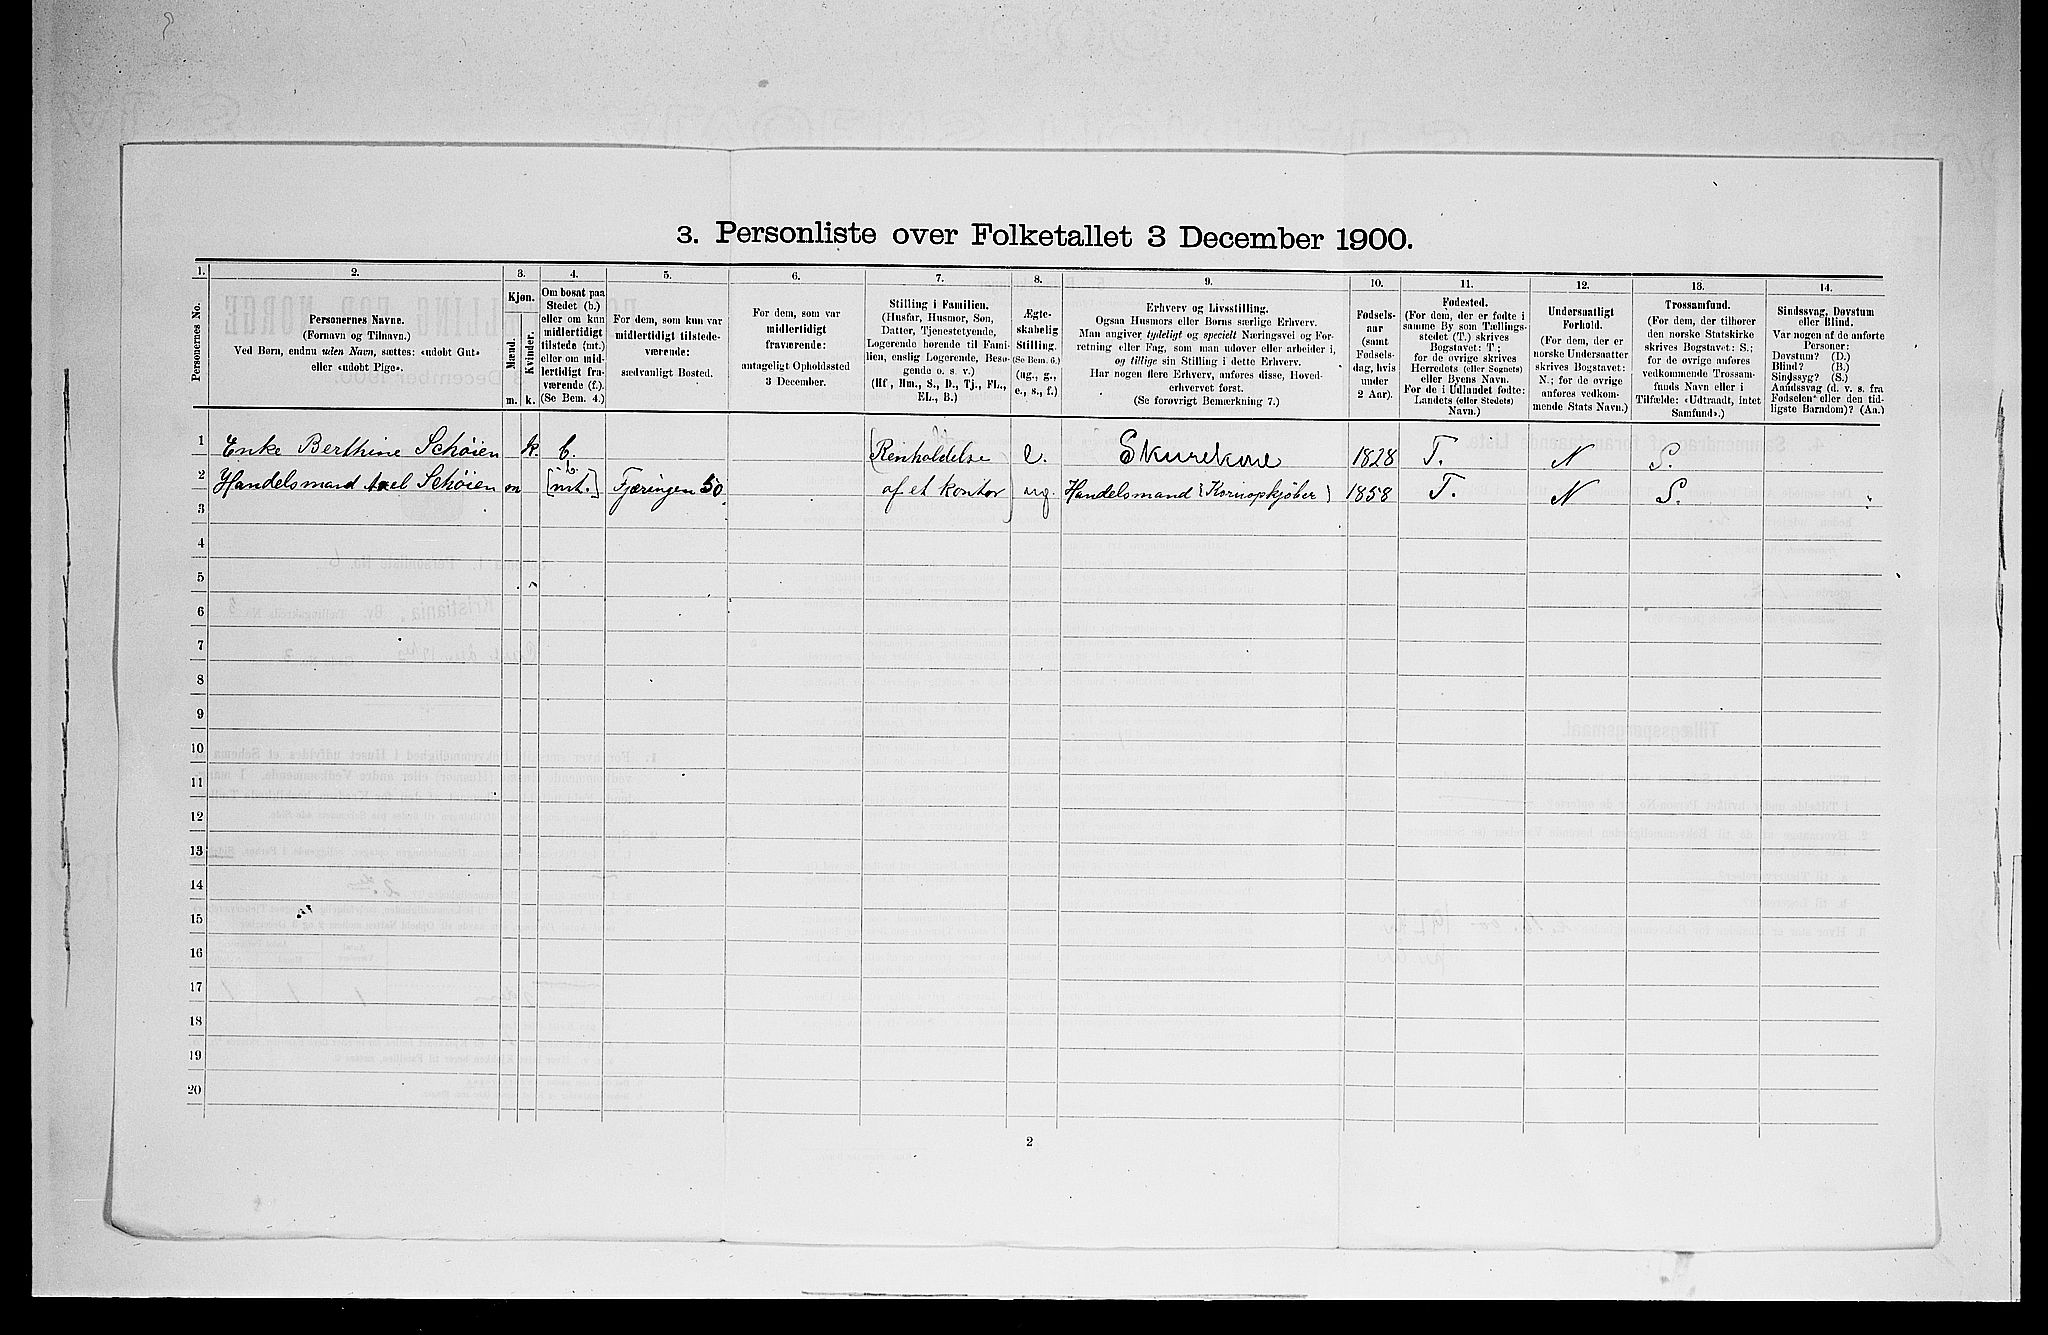 3. Personliste over Folketallet 3 December 1900.
1. 2. 3. 4. 5. 6. 7. 8. 9. 10. 11. 12. 13. 14.
Personernes No.
Personernes Navne.
(Fornavn og Tilnavn.)
Ved Børn, endnu uden Navn, sættes: «udøbt Gut»
eller «udøbt Pige».
Kjøn.
Mænd.
Kvinder.
m. k.
Om bosat paa
Stedet (b.)
eller om kun
midlertidigt
tilstede (mt.)
eller om mid-
lertidigt fra-
værende (f.).
(Se Bem. 4.)
For dem, som kun var
midlertidigt tilstede-
værende:
sædvanligt Bosted.
For dem, som var
midlertidigt
fraværende:
antageligt Opholdssted
3 December.
Stilling i Familien.
(Husfar, Husmor, Søn,
Datter, Tjenestetyende,
Logerende hørende til Fami-
lien, enslig Logerende, Besø-
gende o. s. v.)
(Hf., Hm., S., D., Tj., FL.,
EL., B.)
Ægte-
skabelig
Stilling.
(Se Bem. 6.)
(ug., g.,
e., s., f.)
Erhverv og Livsstilling.
Ogsaa Husmors eller Børns særlige Erhverv.
Man angiver tydeligt og specielt Næringsvei og For-
retning eller Fag, som man udøver eller arbeider i,
og tillige sin Stilling i dette Erhverv.
Har nogen flere Erhverv, anføres disse, Hoved-
erhvervet først.
(Se forøvrigt Bemærkning 7.)
Fødsels-
aar
(samt
Fødsels-
dag, hvis
under
2 Aar).
Fødested.
(For dem, der er fødte i
samme By som Tællings-
stedet (T.) skrives
Bogstavet: T.;
for de øvrige skrives
Herredets (eller Sognets)
eller Byens Navn.
For de i Udlandet fødte:
Landets (eller Stedets)
Navn.)
Undersaatligt
Forhold.
(For dem, der er
norske Undersaatter
skrives Bogstavet:
N.; for de øvrige
anføres vedkom-
mende Stats Navn.)
Trossamfund.
(For dem, der tilhører
den norske Statskirke
skrives Bogstavet: S.;
for de øvrige anføres
vedkommende Trossam-
funds Navn eller i
Tilfælde: «Udtraadt, intet
Samfund».)
Sindssvag, Døvstum
eller Blind.
Var nogen af de anførte
Personer:
Døvstum? (D.)
Blind? (B.)
Sindssyg? (S.)
Aandssvag (d. v. s. fra
Fødselen eller den tid-
ligste Barndom)? (Aa.)
1 Enke Berthine Schøien k. b. (Renholdelse e. Skurekone 1828 T. N S.
b.
2 Handelsmand Axel Schøien m [mt.] Fjæringen 50 af et kontor) ug. Handelsmand (Kornopkjøber) 1858 T. N S.
3
4
5
6
7
8
9
10
11
12
13
14
15
16
17
18
19
20
2